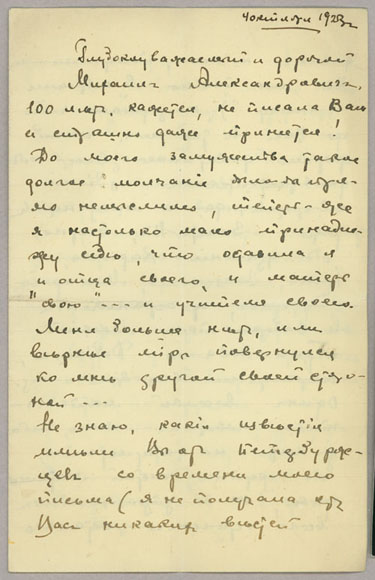 4 октября 1923 г.
Глубокоуважаемый и дорогой
Михаил Александрович,
100 лѣт, кажется, не писала Вам
и страшно даже признаться!
До моего замужества такое
долгое молчаніе было-бы пря-
мо немыслимо, теперь-же
я настолько мало принадле-
жу себѣ, что оставила я
и отца своего, и матерь
"свою" --- и учителя своего.
Меня больше нѣт, или
вѣрнѣе мір повернулся
ко мнѣ другой своей сторо-
ной ---
Не знаю, какія извѣстія
имѣли Вы от Петербурж-
цев со времени моего
письма (я не получала от
Вас никаких вѣстей